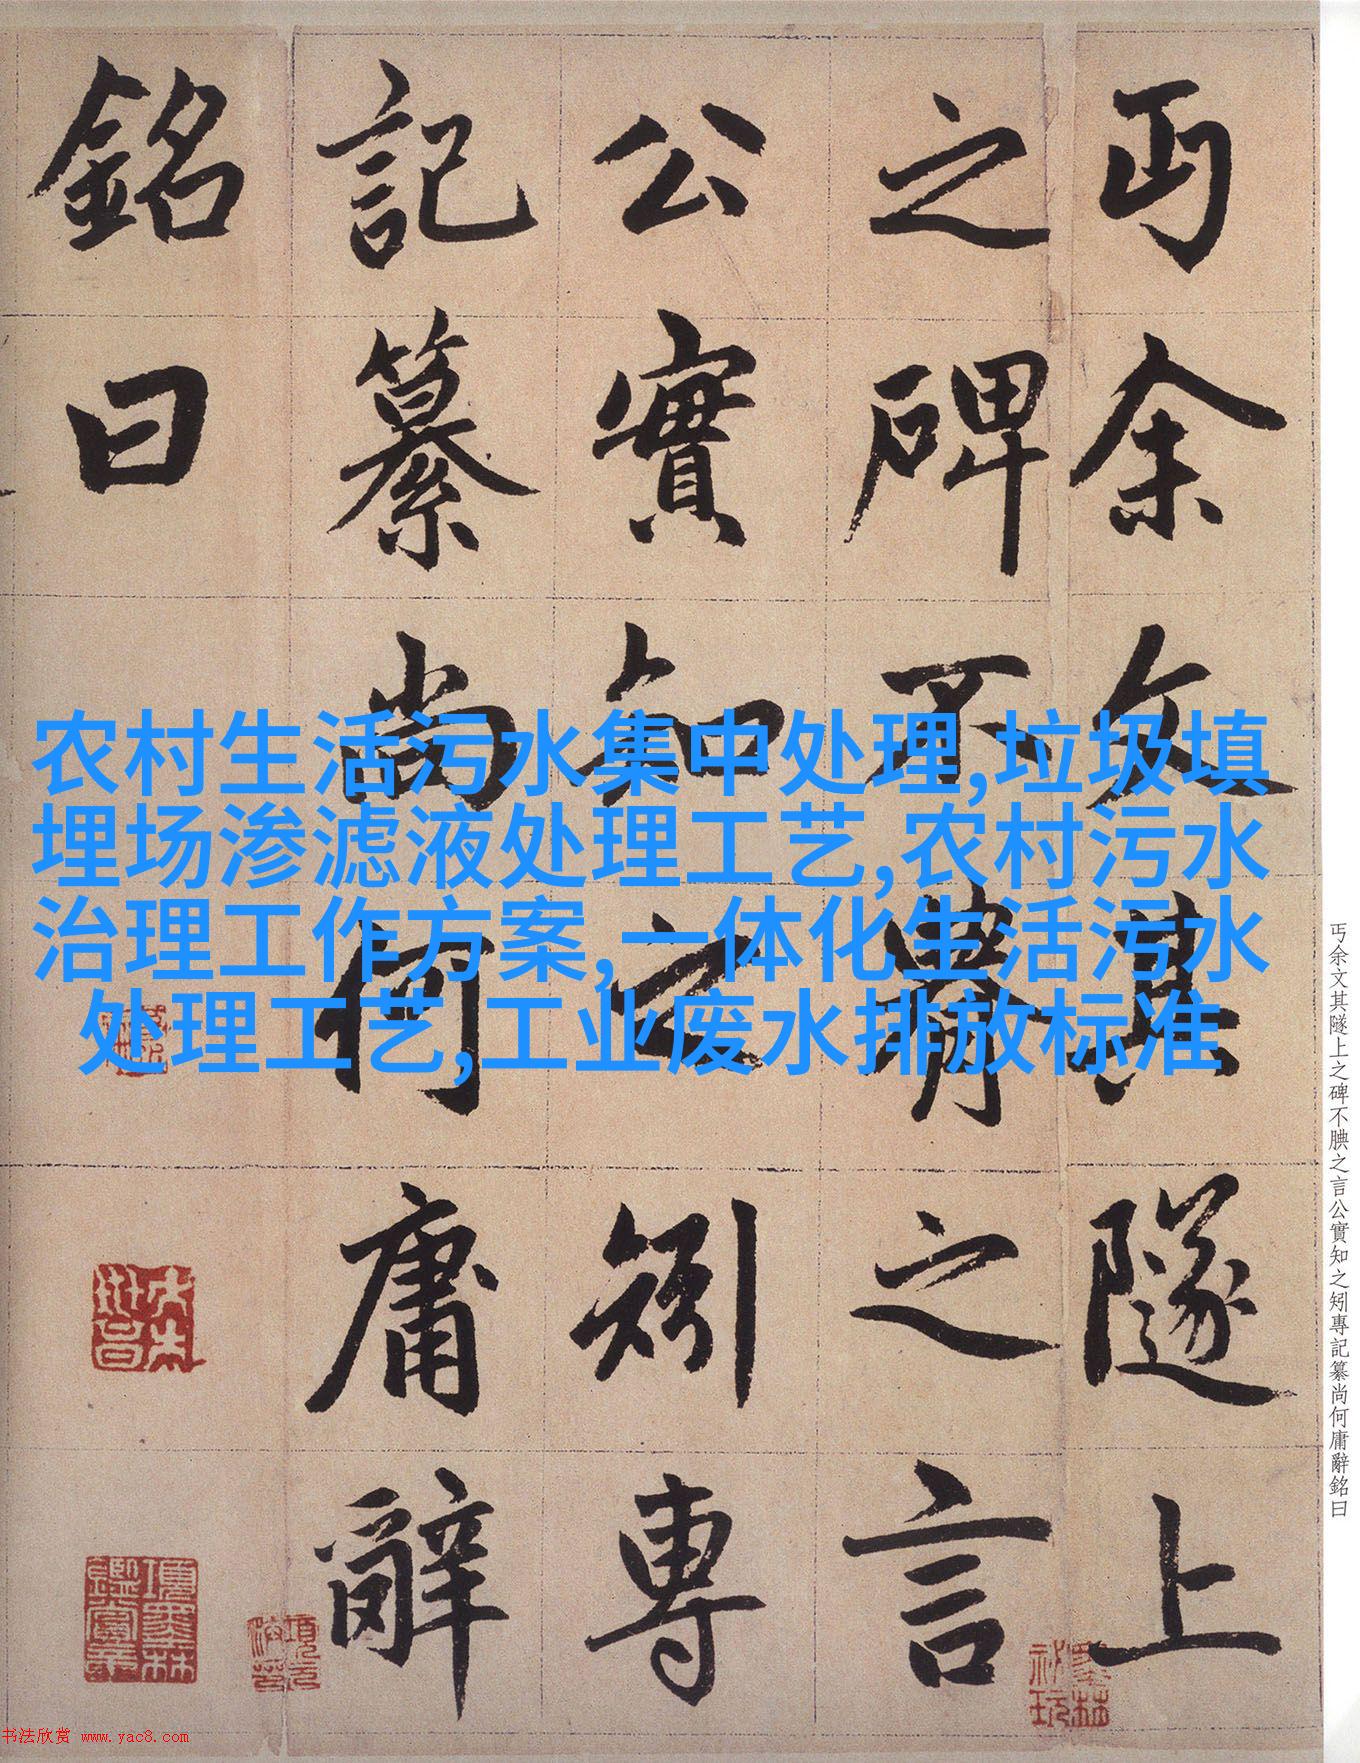 丏余文其隧上
之碑不腆之言
公實知之矧專
記纂尚何庸辭
銘曰
农村生活污水集中处理,垃圾填
埋场渗滤液处理工艺,农村污水
治理工作方案, 一体化生活污水
处理工艺,工业废水排放标准
丏余文其隧上之碑不腆之言公實知之矧專記纂尚何庸辭銘曰
项墨林鑑賞章
书法欣赏 www.yac8.com